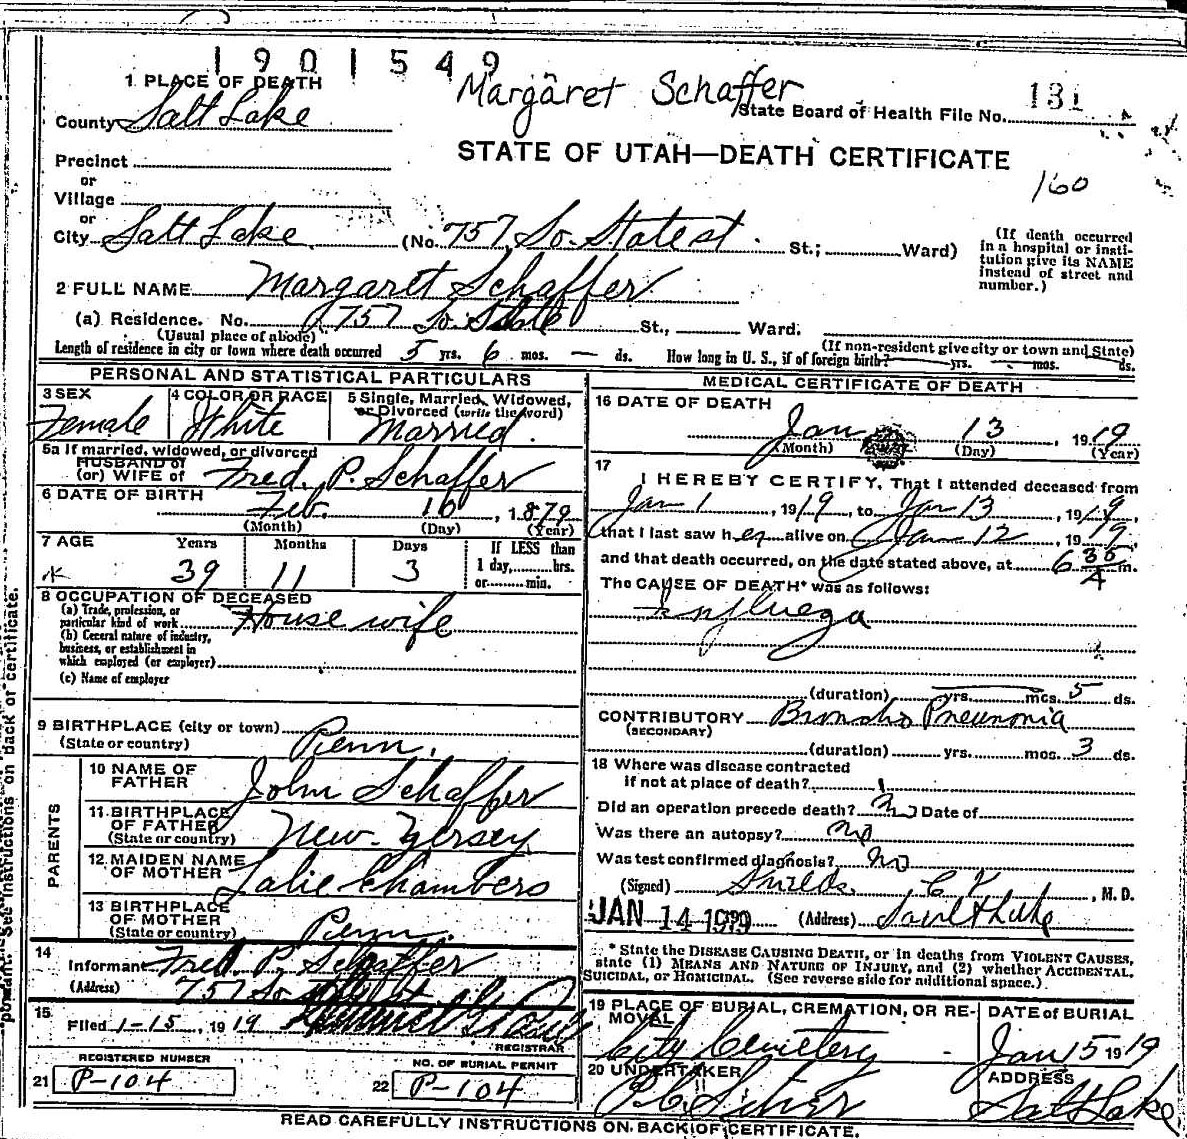 1901549
1 PLACE OF DEATH
Margaret Schaffer
County Salt Lake
State Board of Health File No. 131
STATE OF UTAH—DEATH CERTIFICATE
160
Precinct
or
Village
or
City Salt Lake (No. 757 So. State st. St.; Ward)
(If death occurred in a hospital or insti-
tution give its NAME
instead of street and
number.)
2 FULL NAME Margaret Schaffer
(a) Residence. No. 757 So. State St., Ward.
(Usual place of abode) (If non-resident give city or town and State)
Length of residence in city or town where death occurred 5 yrs. 6 mos. — ds. How long in U. S., if of foreign birth? yrs. mos. ds.
PERSONAL AND STATISTICAL PARTICULARS
3 SEX 4 COLOR OR RACE 5 Single, Married, Widowed,
or Divorced (write the word)
Female White Married.
5a If married, widowed, or divorced
HUSBAND of
(or) WIFE of Fred. P. Schaffer
6 DATE OF BIRTH Feb. 10, 1879
(Month) (Day) (Year)
7 AGE Years Months Days If LESS than
1 day, hrs.
or min.
39 11 3
8 OCCUPATION OF DECEASED
(a) Trade, profession, or
particular kind of work House wife
(b) General nature of industry,
business, or establishment in
which employed (or employer)
(c) Name of employer
9 BIRTHPLACE (city or town)
(State or country) Penn.
PARENTS
10 NAME OF
FATHER John Schaffer
11 BIRTHPLACE
OF FATHER
(State or country) New Jersey
12 MAIDEN NAME
OF MOTHER Salie Chambers
13 BIRTHPLACE
OF MOTHER
(State or country) Penn.
14
Informant Fred. P. Schaffer
(Address) 757 So
15
Filed 1-15, 1919
REGISTRAR
REGISTERED NUMBER
21 P-104
NO. OF BURIAL PERMIT
22 P-104
MEDICAL CERTIFICATE OF DEATH
16 DATE OF DEATH
Jan 13, 1919
(Month) (Day) (Year)
17
I HEREBY CERTIFY, That I attended deceased from
Jan 1, 1919, to Jan 13, 1919,
that I last saw her alive on Jan 12, 1919
and that death occurred, on the date stated above, at 6 35 A m.
The CAUSE OF DEATH* was as follows:
Influeza
(duration) yrs. mos. 5 ds.
CONTRIBUTORY Broncho Pneunonia
(SECONDARY)
(duration) yrs. mos. 3 ds.
18 Where was disease contracted
if not at place of death?
Did an operation precede death? no Date of
Was there an autopsy? no
Was test confirmed diagnosis? no
(Signed) , M. D.
JAN 14 1919 (Address) Salt Lake
* State the DISEASE CAUSING DEATH, or in deaths from VIOLENT CAUSES,
state (1) MEANS AND NATURE OF INJURY, and (2) whether ACCIDENTAL,
SUICIDAL, or HOMICIDAL. (See reverse side for additional space.)
19 PLACE OF BURIAL, CREMATION, OR RE-
MOVAL
DATE OF BURIAL
City Cemetery Jan 15 1919
20 UNDERTAKER ADDRESS
Salt Lake
READ CAREFULLY INSTRUCTIONS ON BACK OF CERTIFICATE.
See instructions on back of certificate.